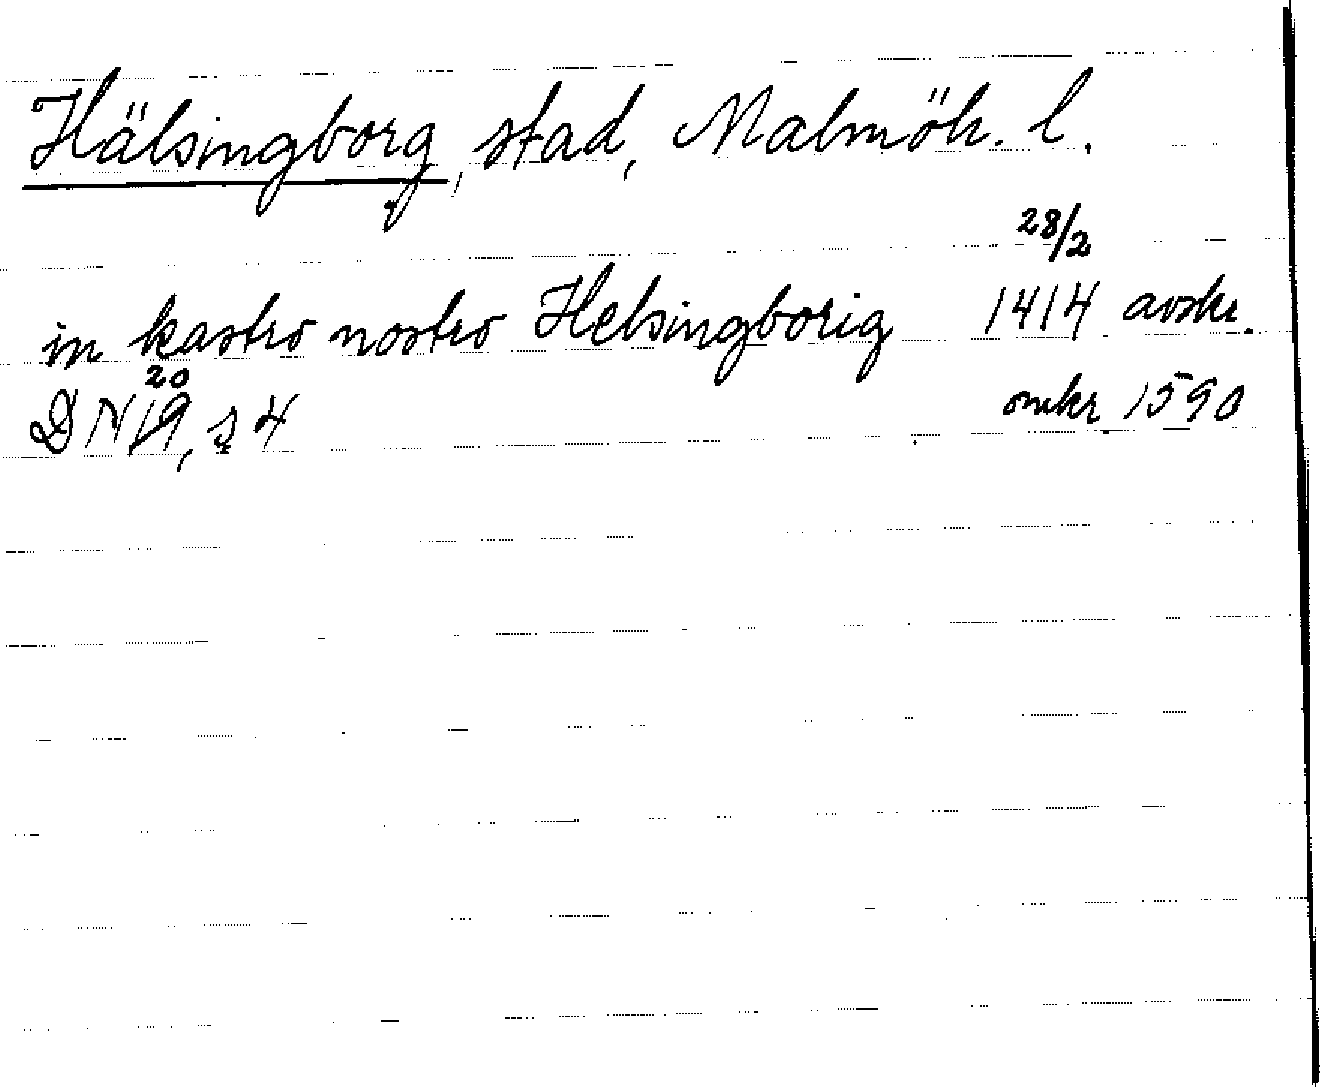 Hälsingborg, stad, Malmöh. l.
28/2
in kastro nostro Helsingborig 1414 avskr.
20
DN 19, s 4 omkr 1590